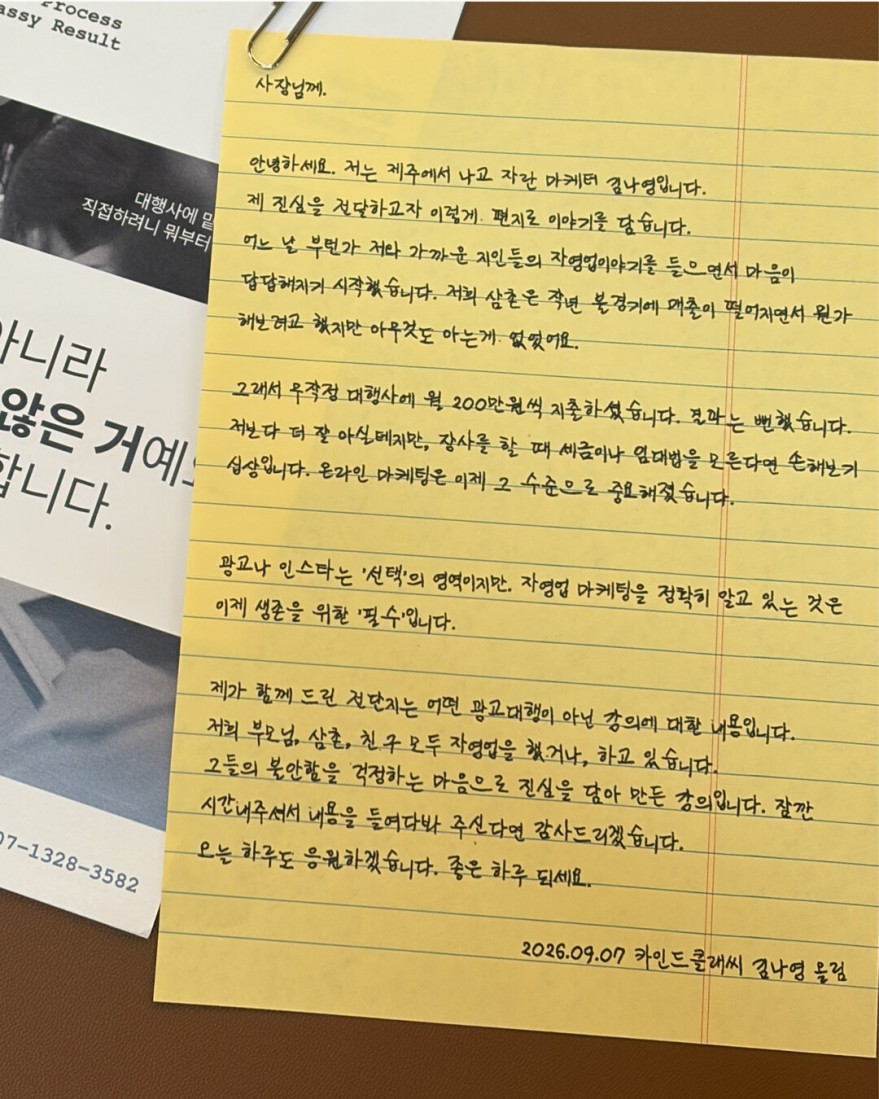 Process
assy Result
대행사에
직접하려니 뭐부터
아니라
않은 거예
합니다.
07-1328-3582
사장님께.
안녕하세요. 저는 제주에서 나고 자란 마케터 김나영입니다.
제 진심을 전달하고자 이렇게. 편지로 이야기를 담습니다.
어느 날 부턴가 저와 가까운 지인들의 자영업이야기를 들으면서 마음이
답답해지기 시작했습니다. 저희 삼촌은 작년 불경기에 매출이 떨어지면서 뭔가
해보려고 했지만 아무것도 아는게 없었어요.
그래서 무작정 대행사에 월 200만원씩 지출하셨습니다. 결과는 뻔했습니다.
저보다 더 잘 아실테지만, 장사를 할 때 세금이나 임대법을 모른다면 손해보기
십상입니다. 온라인 마케팅은 이제 그 수준으로 중요해졌습니다.
광고나 인스타는 '선택'의 영역이지만. 자영업 마케팅을 정확히 알고 있는 것은
이제 생존을 위한 '필수'입니다.
제가 함께 드린 전단지는 어떤 광고대행이 아닌 강의에 대한 내용입니다.
저희 부모님, 삼촌, 친구 모두 자영업을 했거나, 하고 있습니다.
그들의 불안함을 걱정하는 마음으로 진심을 담아 만든 강의입니다. 잠깐
시간내주셔서 내용을 들여다봐 주신다면 감사드리겠습니다.
오늘 하루도 응원하겠습니다. 좋은 하루 되세요.
2026.09.07 카인드클래씨 김나영 올림